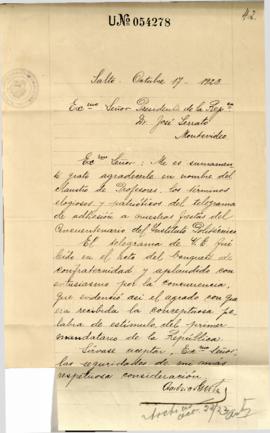 U.Nº 054278
42.
Salto. Octubre 17 - 1923
Exmo Señor Presidente de la Rep.ca
Dr. José Serrato
Montevideo
Exmo Señor: Me es sumamen
te grato agradecerle en nombre del
Claustro de Profesores, los términos
elogiosos y patrióticos del telegrama
de adhesión a nuestras fiestas del
Cincuentenario del Instituto Politécnico
El telegrama de V.E. fué
leído en el acto del banquete de
confraternidad y aplaudido con
entusiasmo por la concurrencia,
que evidenció así el agrado con que
era recibida la conceptuosa pa
labra de estímulo del primer
mandatario de la República
Sírvase aceptar, Exmo Señor,
las seguridades de mi más
respetuosa consideración